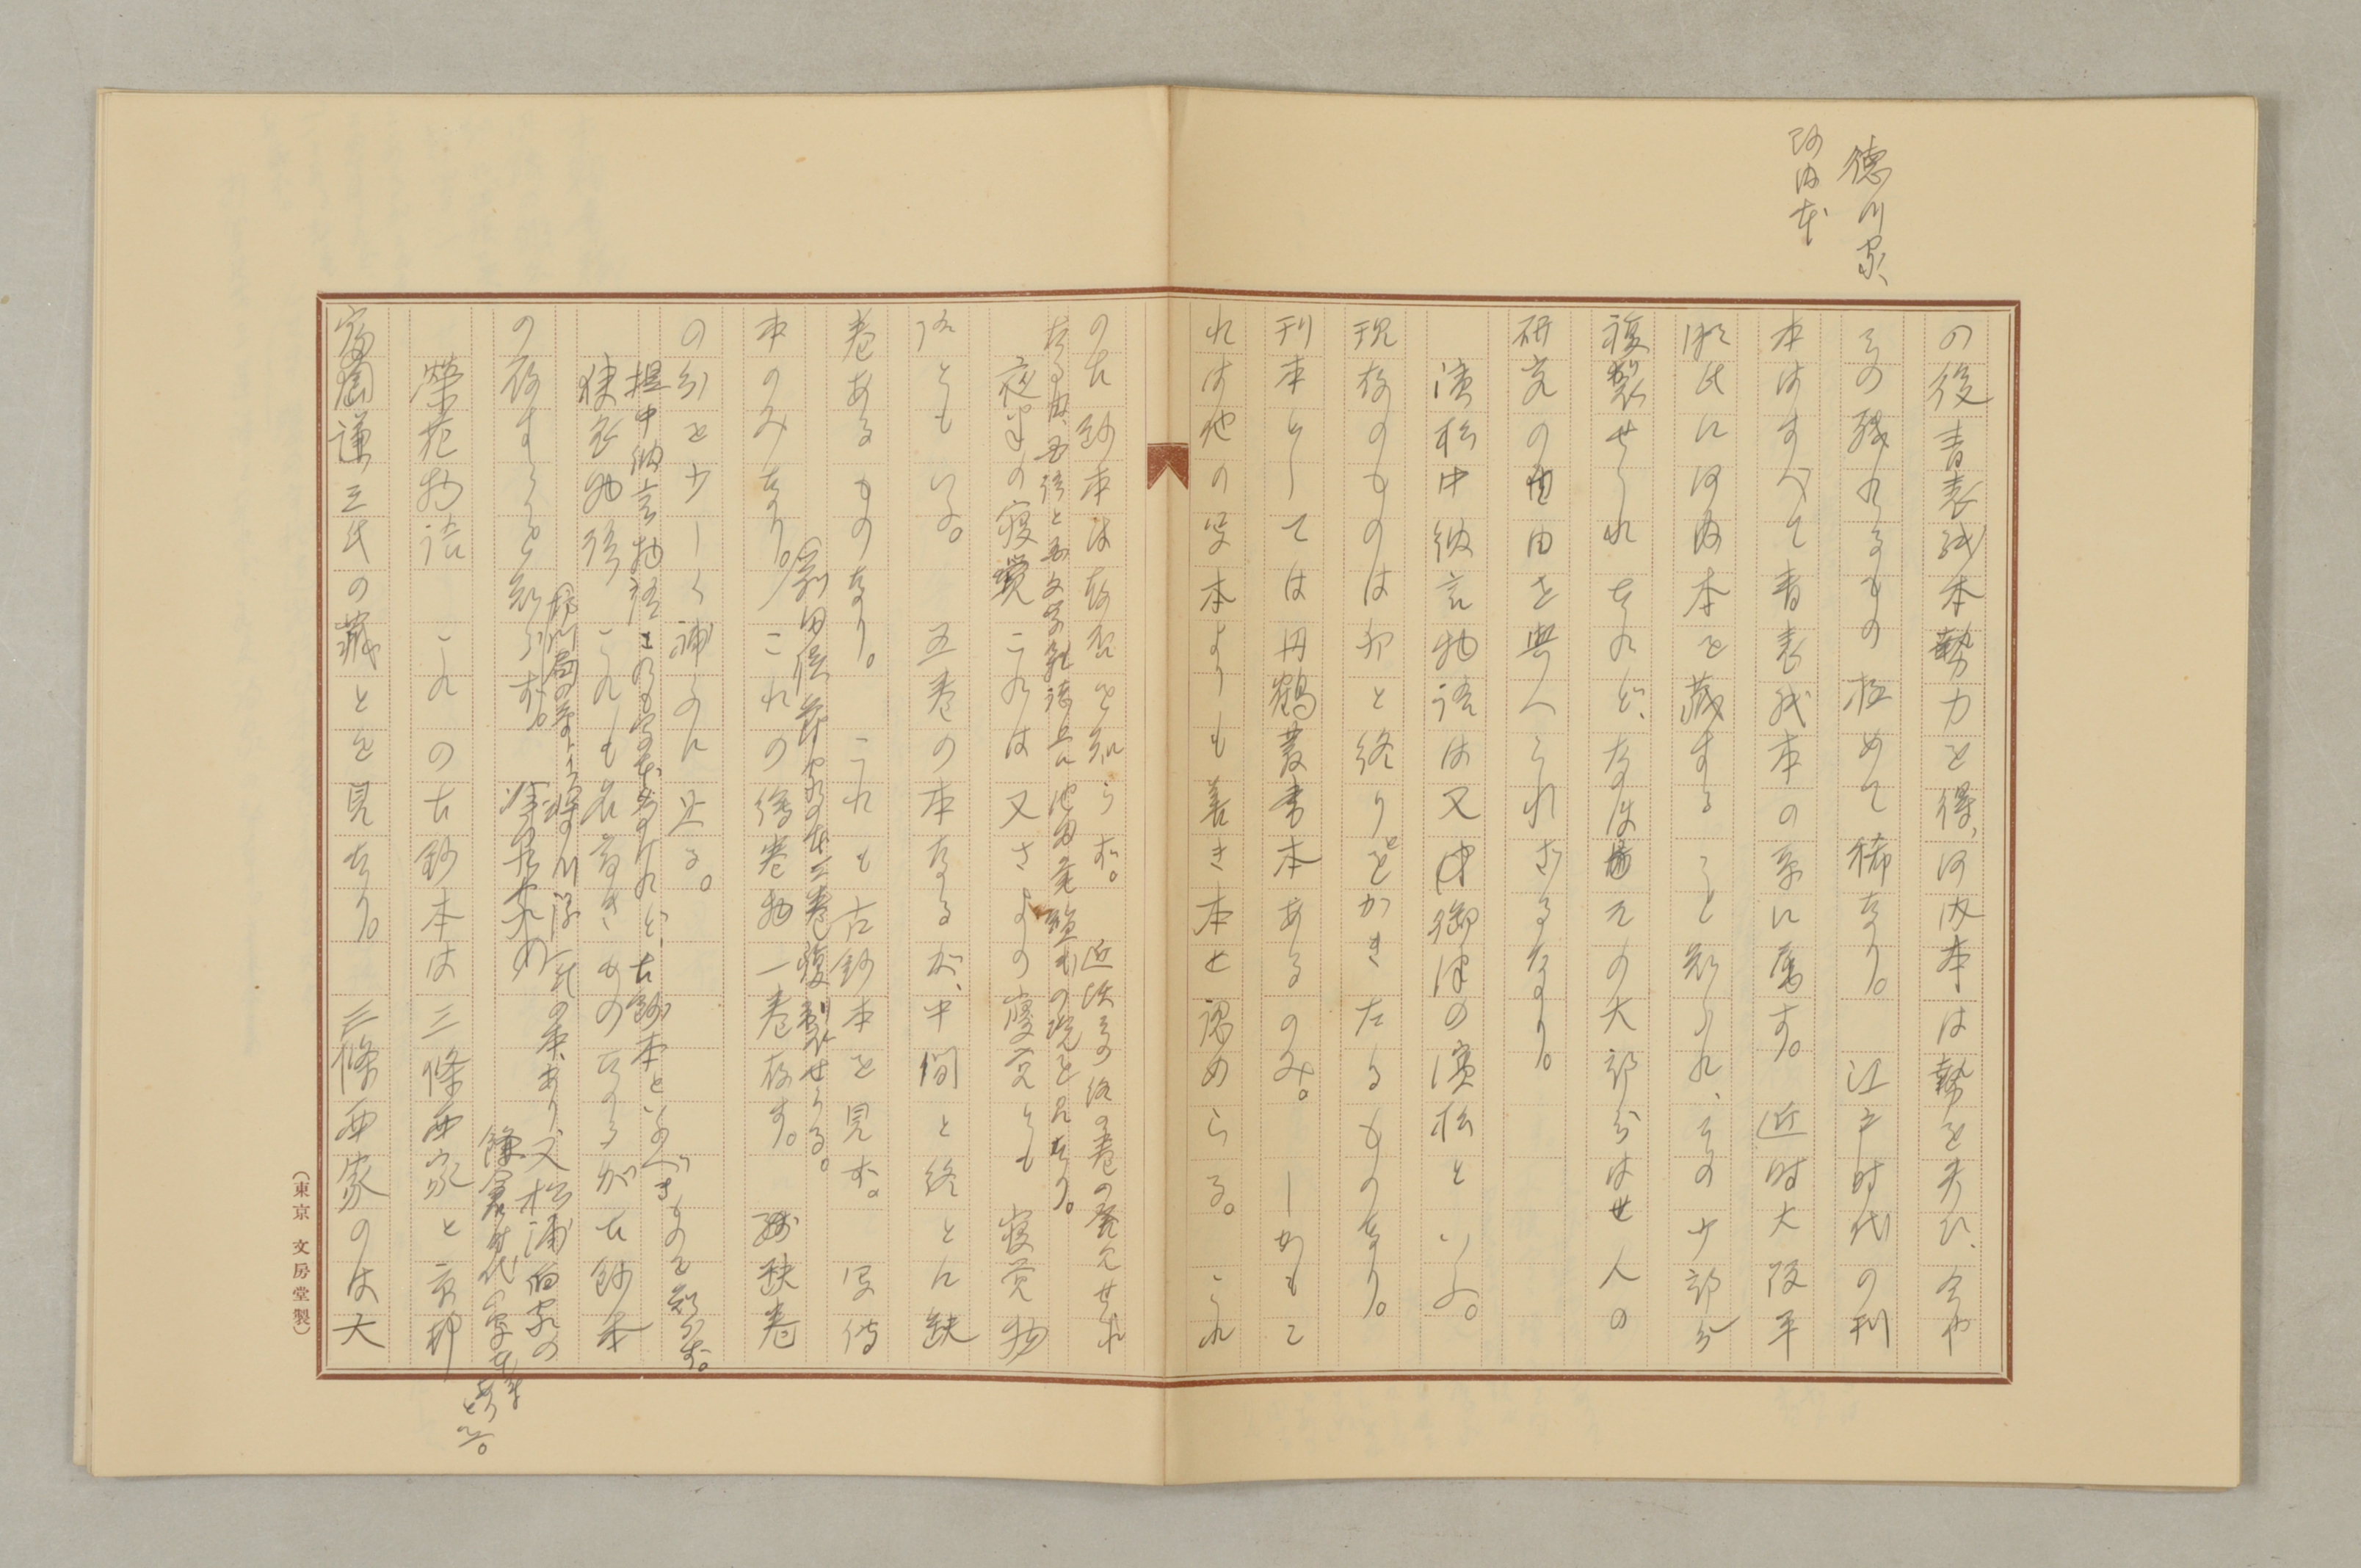 徳川家、
河内本
の後青表紙本勢力を得、河内本は勢を失ひ、今や
その残れるもの極めて稀なり。　江戸時代の刊
本はすべて青表紙本の系に属す。　近時大阪平
瀬氏に河内本を蔵すること知られ、その少部分
複製せられたれど、なほその大部分は世人の
研究の自由を與へられざるなり。
濱松中納言物語は又御津の濱松といふ。
現存のものは初と終りとをかきたるものなり。
刊本としては丹鶴叢書本あるのみ。　しかもこ
れは他の写本よりも善き本と認めらる。　これ
の古鈔本は存否を知らず。　近次その終の巻の発見せられ
たる由、国語と国文学雑誌上に池田亀鑑氏の説を見たり。
夜半の寝覚　これは又さよの寝覚とも寝覚物
語ともいふ。　五巻の本なるが、中間と終とに缺
巻あるものなり。　これも古鈔本を見ず。　写傳
本のみなり。　これの繪巻物一巻存す。　殘缺巻
（前田侯爵家の本三巻複製せらる。
の分を少しく補ふに足る。
堤中納言物語これも写本多けれど、古鈔本といふべきものを知らず。
狭衣物語　これも名高きものなるが古鈔本
の存するを知らず。
又松浦伯家の
鎌倉時代の写本ありといふ。
榮花物語　これの古鈔本は三條西家と京都
富岡謙三氏の蔵とを見たり。　三條西家のは大
（東京 文房堂製）